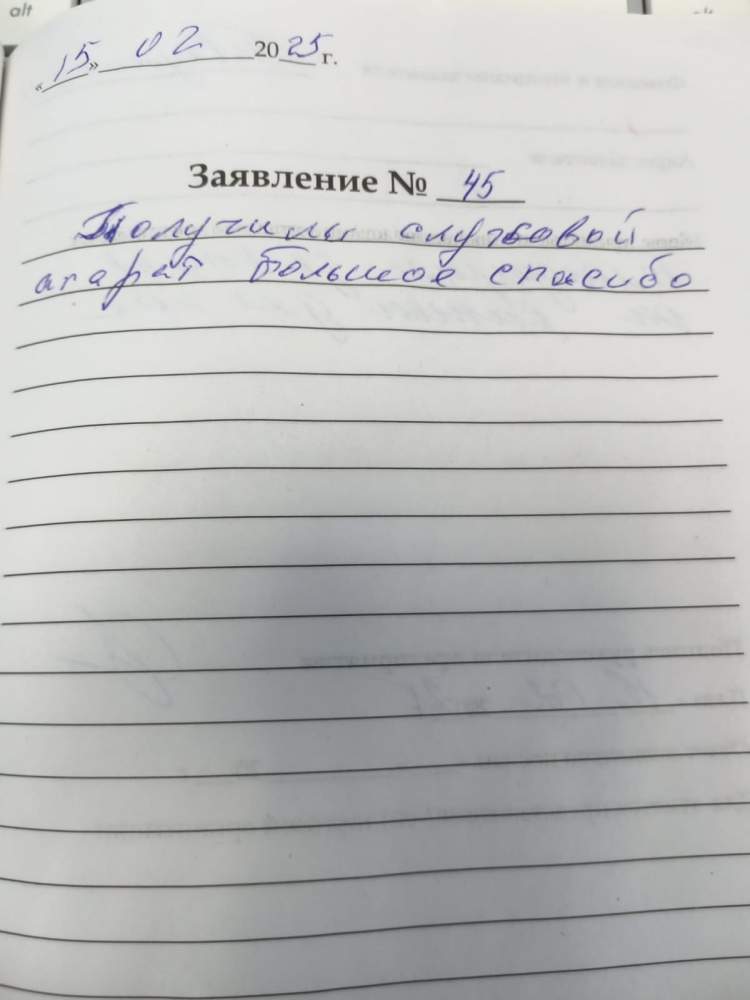 alt
«15» 02 2025 г.
Заявление № 45
Получили службовой
апарат большое спасибо